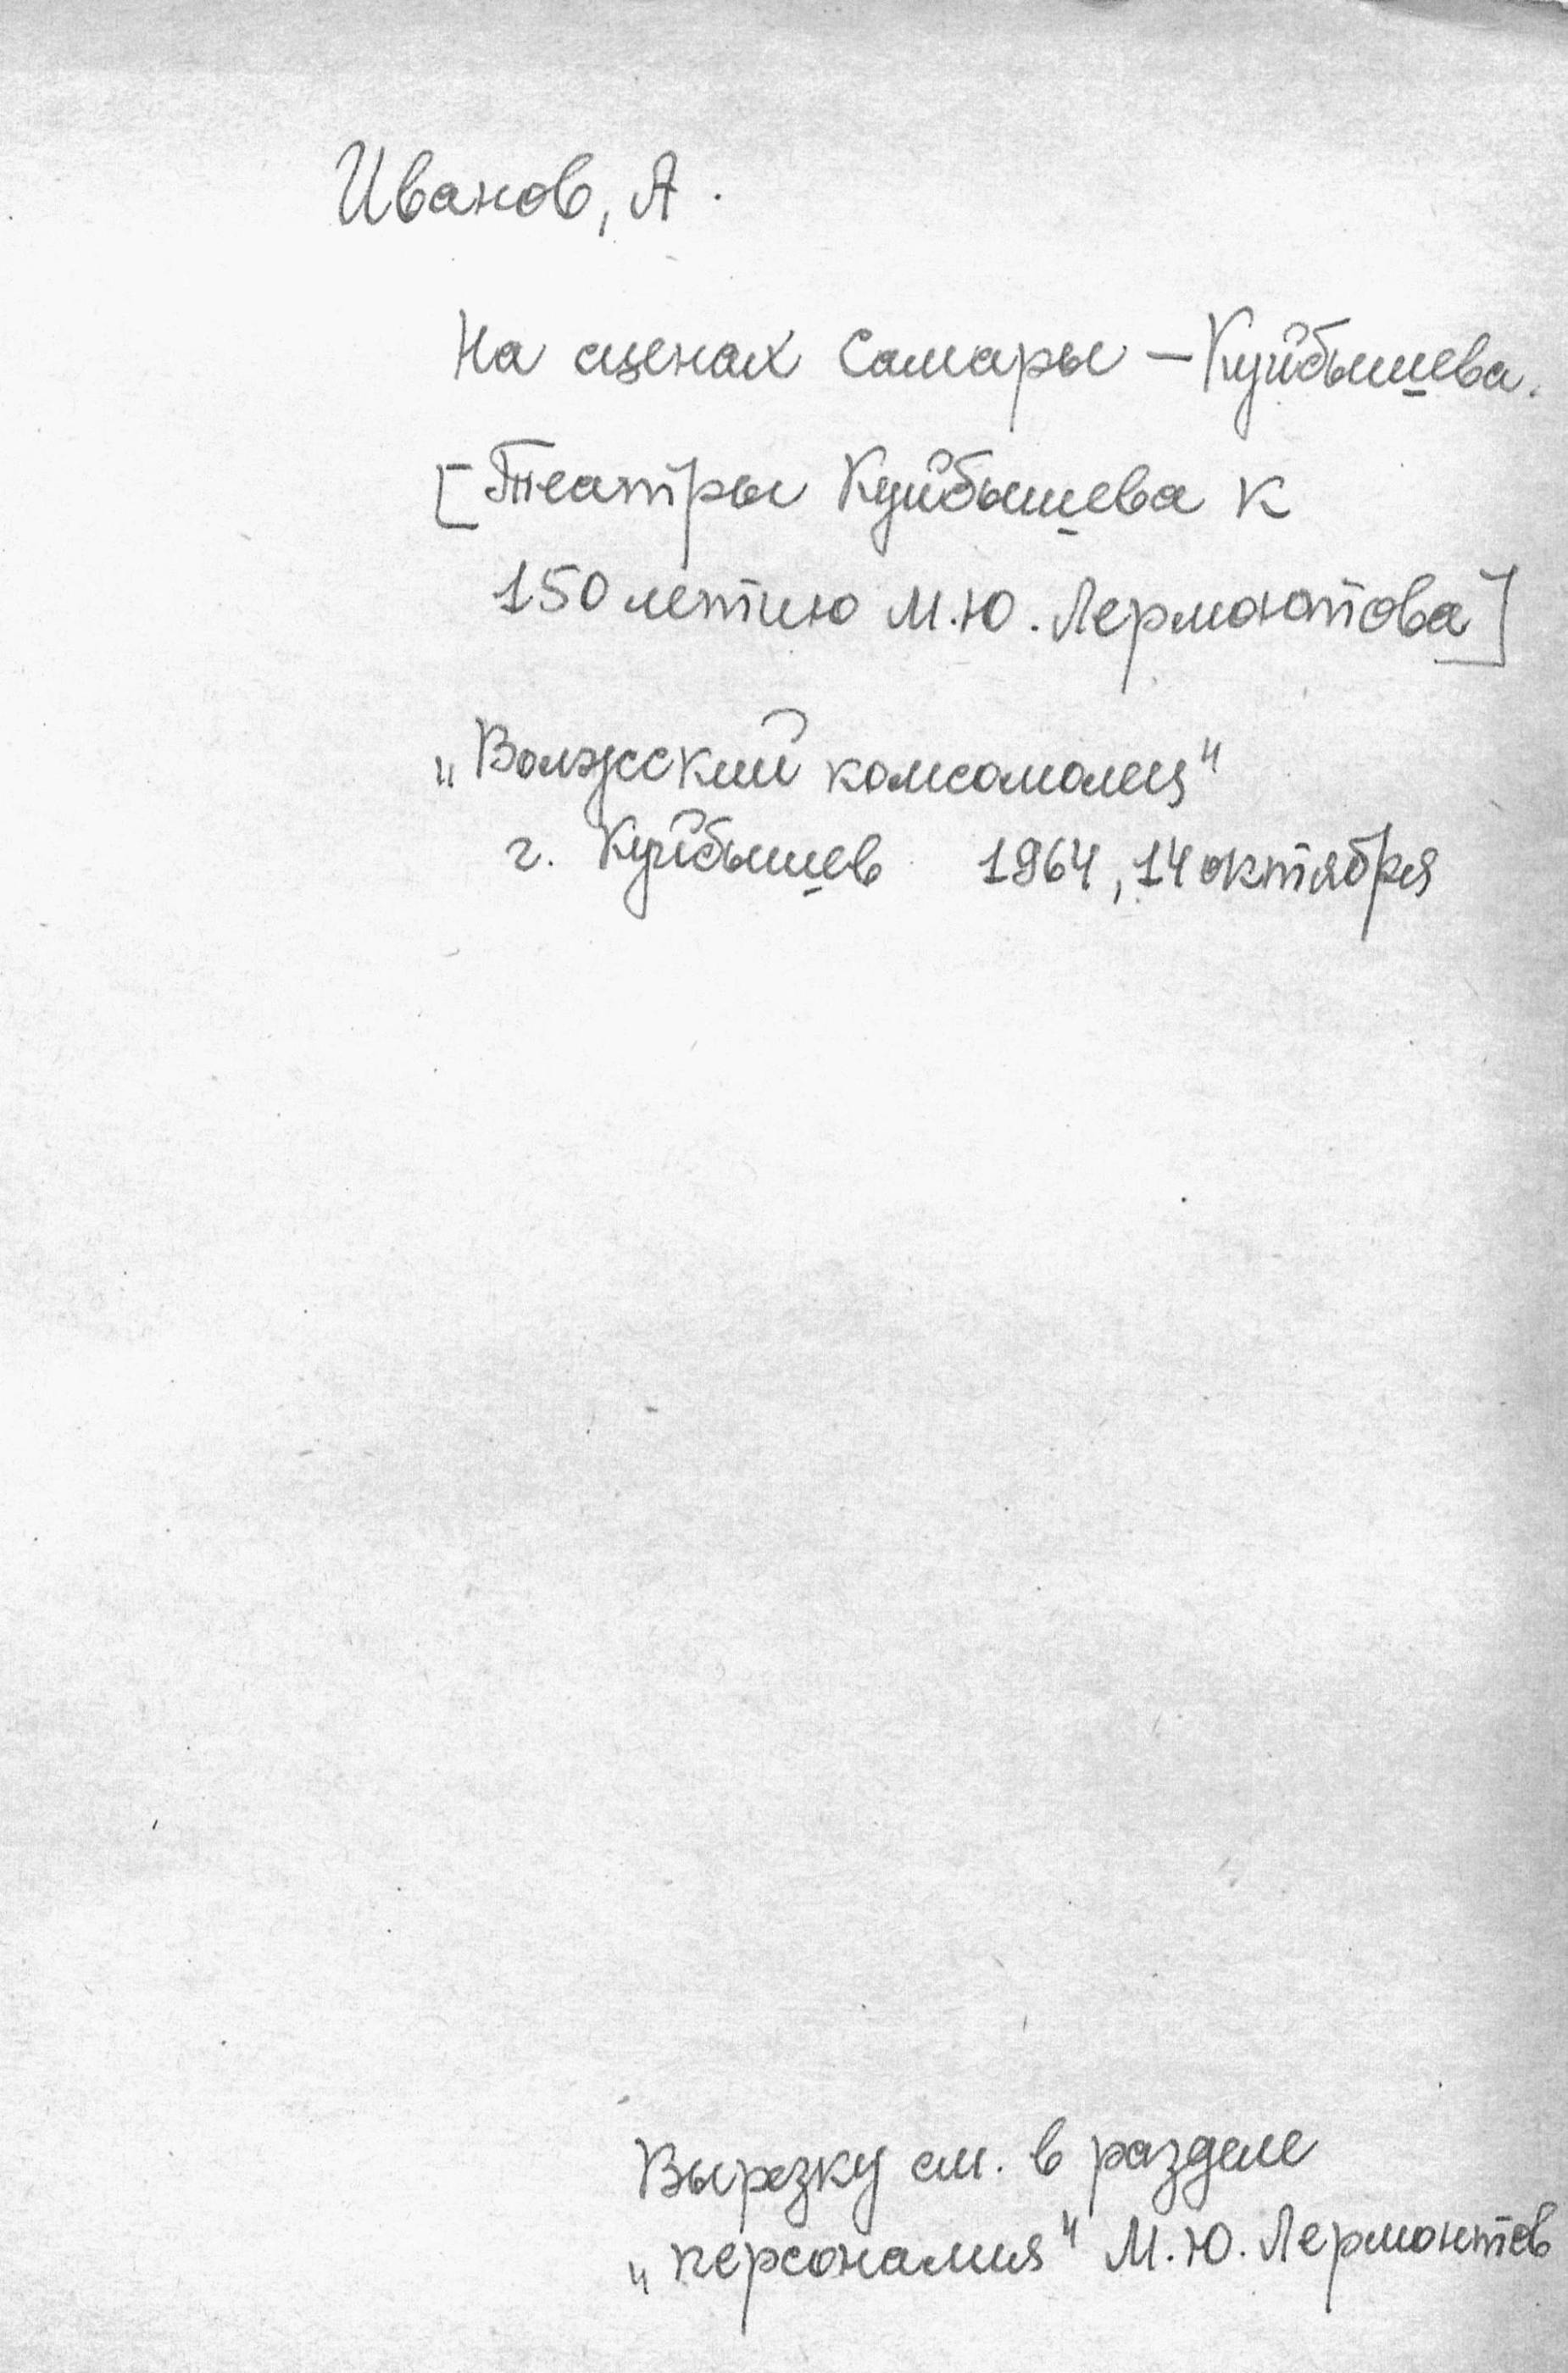 Иванов, А.
На сценах Самары – Куйбышева.
[Театры Куйбышева к
150 летию М.Ю. Лермонтова]
„Волжский комсомолец"
г. Куйбышев 1964, 14 октября
Вырезку см. в разделе
„персоналия" М.Ю. Лермонтов